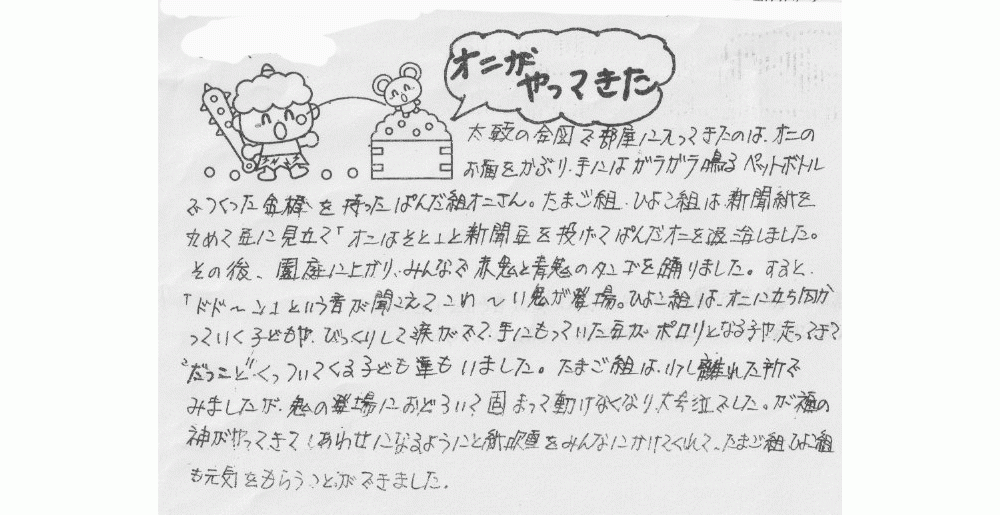 オニが
やってきた
太鼓の合図で部屋に入ってきたのは、オニの
お面をかぶり、手にはガラガラ鳴るペットボトル
でつくった金棒を持ったぱんだ組オニさん。たまご組、ひよこ組は新聞紙を
丸めて豆に見立て「オニはそと」と新聞豆を投げてぱんだオニを退治しました。
その後、園庭に上がり、みんなで赤鬼と青鬼のタンゴを踊りました。すると、
「ドド〜ン」という音が聞こえてこわ〜い鬼が登場。ひよこ組は、オニに立ち向か
っていく子どもや、びっくりして涙がでて、手にもっていた豆がポロリとなる子や、走ってきて
"だっこ"とくっついてくる子ども達もいました。たまご組は、少し離れた所で
みましたが、鬼の登場におどろいて固まって動けなくなり大号泣でした。が福の
神がやってきてしあわせになるようにと紙吹雪をみんなにかけてくれて、たまご組ひよこ組
も元気をもらうことができました。